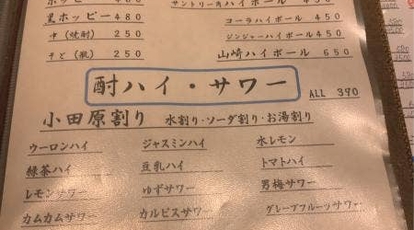 ホッピー 480
サントリー角ハイボール 450
黒ホッピー 480
コーラハイボール 450
中(焼酎) 250
ジンジャーハイボール 450
そと(瓶) 250
山崎ハイボール 650
酎ハイ・サワー
ALL 390
小田原割り 水割り・ソーダ割り・お湯割り
ウーロンハイ ジャスミンハイ 水レモン
緑茶ハイ 豆乳ハイ トマトハイ
レモンサワー ゆずサワー 男梅サワー
カムカムサワー カルピスサワー グレープフルーツサワー